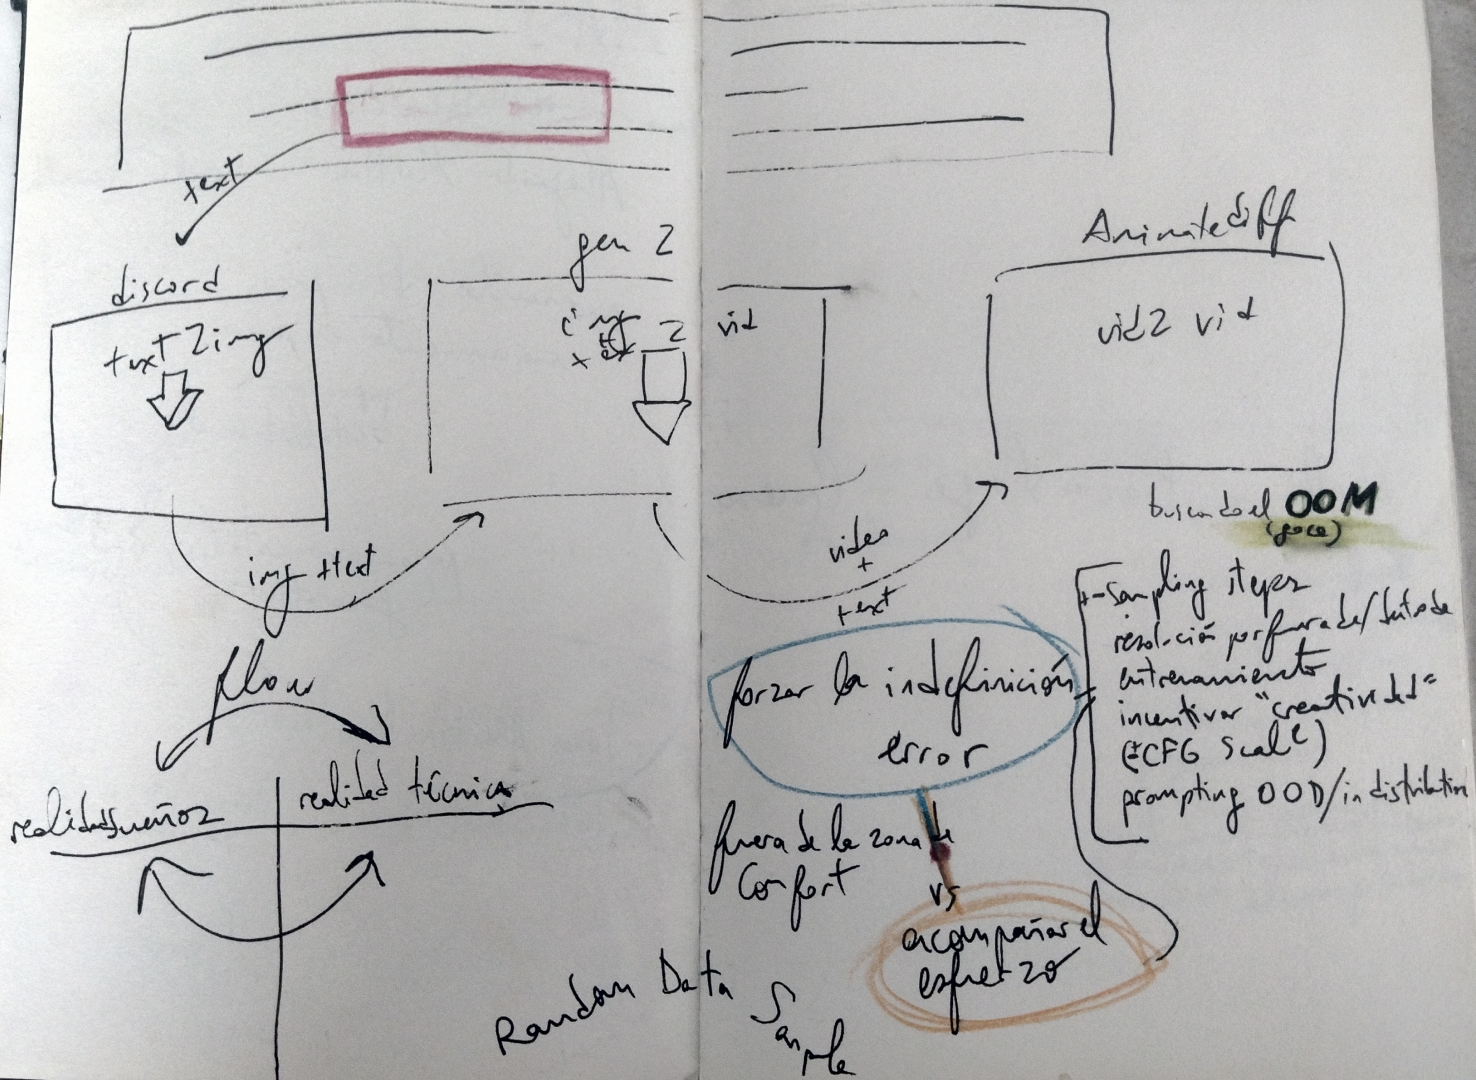 text
discord
text2img
img +text
gen 2
img 2 vid
+ text
video
+
text
Animatediff
vid2 vid
buscando el OOM
(goce)
+- sampling steps
resolución por fuera de/dentro de
entrenamiento
incentivar "creatividad"
(±CFG Scale)
prompting OOD/in distribution
flow
realidad sueños
realidad técnica
forzar la indefinición
error
fuera de la zona de
confort
vs
acompañar el
esfuerzo
Random Data
Sample